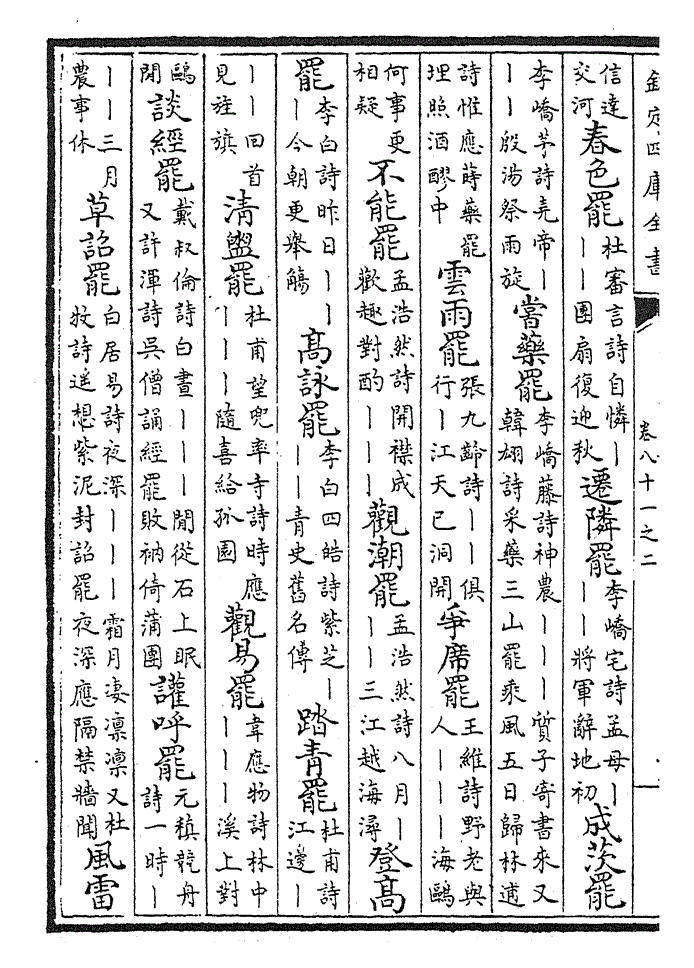 欽定四庫全書 卷八十一之二 一
信達交河春色罷杜審言詩自憐丨丨丨團扇復迎秋遷隣罷李嶠宅詩孟母丨丨丨將軍辭地初成茨罷
李嶠茅詩堯帝丨丨丨殷湯祭雨旋嘗藥罷李嶠藤詩神農丨丨丨質子寄書來又韓翃詩采藥三山罷乘風五日歸林逋
詩惟應蒔藥罷埋照酒醪中雲雨罷張九齡詩丨丨俱行丨江天已洞開爭席罷王維詩野老與人丨丨丨海鷗
何事更相疑不能罷孟浩然詩開襟成歡趣對酌丨丨丨觀潮罷孟浩然詩八月丨丨丨三江越海潯登高
罷李白詩昨日丨丨丨今朝更舉觴高詠罷李白四皓詩紫芝丨丨丨青史舊名傳踏青罷杜甫詩江邊丨
丨丨回首見旌旗清盥罷杜甫望兜率寺詩時應丨丨丨隨喜給孤園觀易罷韋應物詩林中丨丨丨溪上對
鷗閒談經罷戴叔倫詩白晝丨丨丨閒從石上眠又許渾詩吳僧誦經罷敗衲倚蒲團讙呼罷元稹競舟詩一時丨
丨丨三月農事休草詔罷白居易詩夜深丨丨丨霜月凄凛凛又杜牧詩遥想紫泥封詔罷夜深應隔禁牆聞風雷